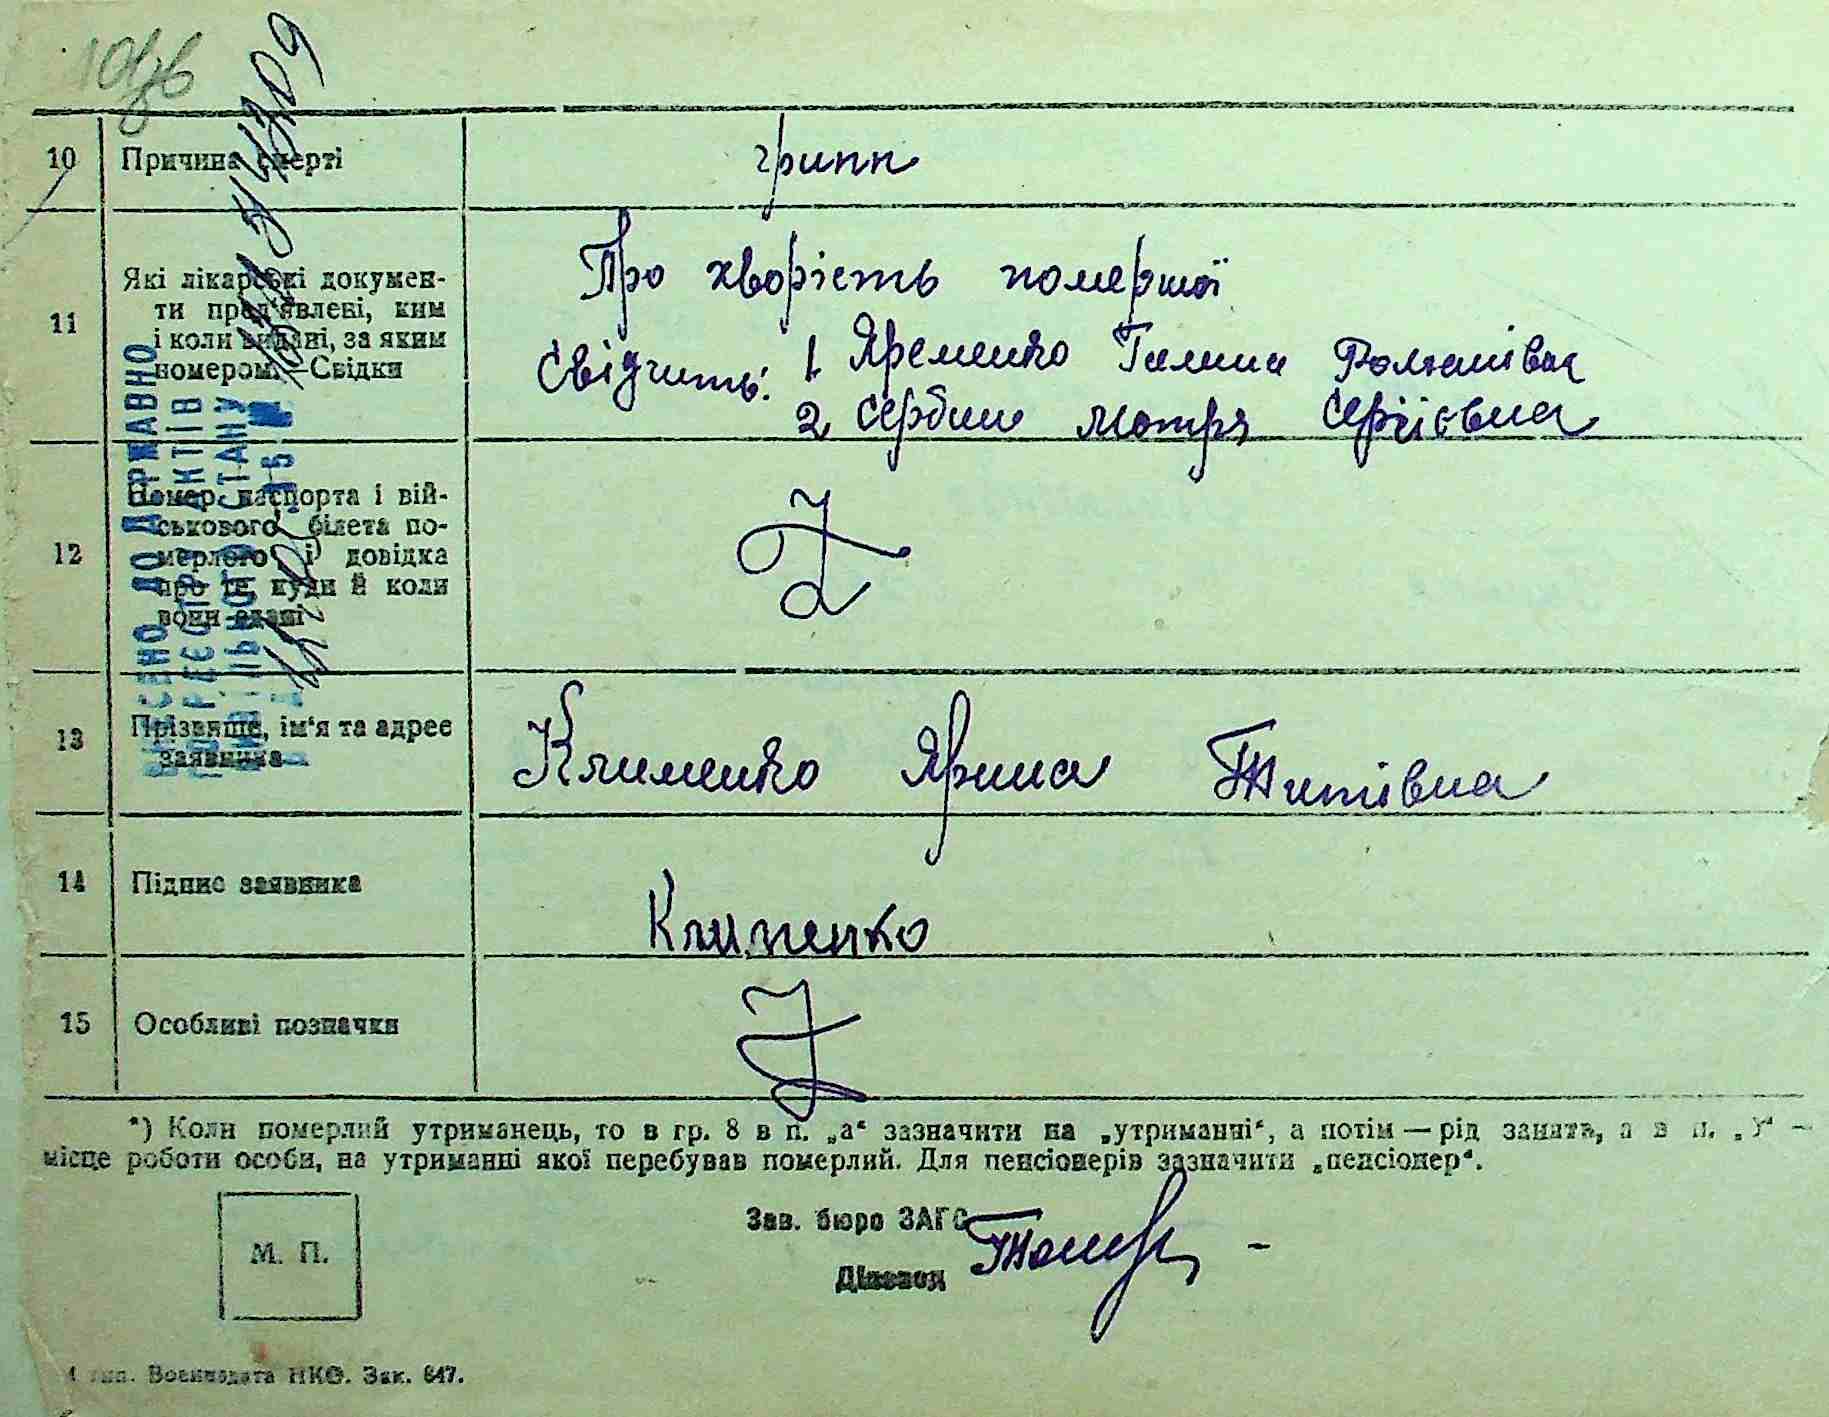 10
Причина смерті
грипп
11
Які лікарські докумен-
ти пред'явлені, ким
і коли видані, за яким
номером.—Свідки
Про хворість помершої
свідчить: 1. Яременко Галина Романівна
2 Сербин Мотря Сергіївна
12
Номер паспорта і вій-
ськового білета по-
мерлого і довідка
про те, куди й коли
вони здані
13
Прізвище, ім'я та адрес
заявника
Клименко Ярина Титівна
14
Підпис заявника
Клименко
15
Особливі позначки
*) Коли померлий утриманець, то в гр. 8 в п. „а“ зазначити на „утриманні“, а потім — рід занять, а в п. „У“ —
місце роботи особи, на утриманні якої перебував померлий. Для пенсіонерів зазначити „пенсіонер“.
Зав. бюро ЗАГС
Діловод
М. П.
тип. Воениздата НКО. Зак. 647.
ВНЕСЕНО ДО ДЕРЖАВНОГО
РЕЄСТРУ АКТІВ
ЦИВІЛЬНОГО СТАНУ